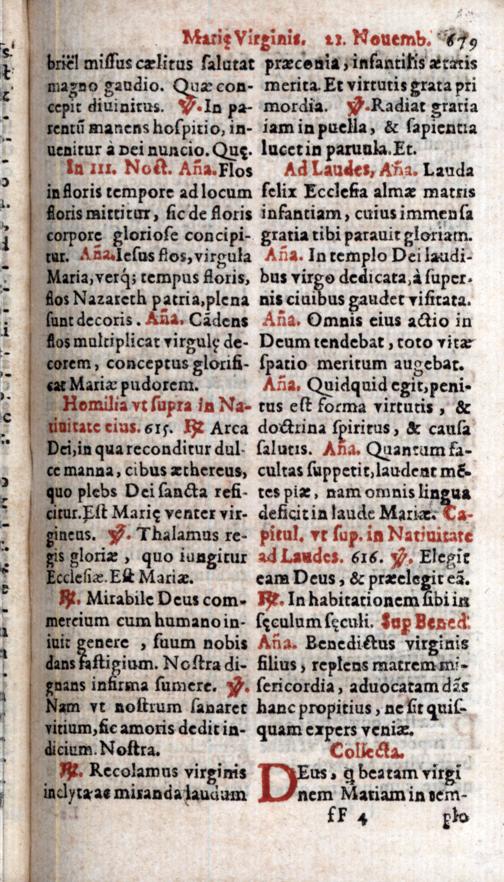 Marię Virginis. 21. Nouemb. 679
briel missus cælitus salutat
magno gaudio. Quæ con-
cepit diuinitus. ℣. In pa-
rentū manens hospitio, in-
uenitur à Dei nuncio. Quę.
In III. Noct. Aña. Flos
in floris tempore ad locum
floris mittitur, sic de floris
corpore gloriose concipi-
tur. Aña. Iesus flos, virgula
Maria, verq; tempus floris,
flos Nazareth patria, plena
sunt decoris. Aña. Cādens
flos multiplicat virgulę de-
corem, conceptus glorifi-
cat Mariæ pudorem.
Homilia vt supra in Na-
tiuitate eius. 615. ℟ Arca
Dei, in qua reconditur dul-
ce manna, cibus æthereus,
quo plebs Dei sancta refi-
citur. Est Marię venter vir-
gineus. ℣. Thalamus re-
gis gloriæ, quo iungitur
Ecclesiæ. Est Mariæ.
℟. Mirabile Deus com-
mercium cum humano in-
iuit genere, suum nobis
dans fastigium. Nostra di-
gnans infirma sumere. ℣.
Nam vt nostrum sanaret
vitium, sic amoris dedit in-
dicium. Nostra.
℟. Recolamus virginis
inclyta ac miranda laudum
præconia, infantilis ætatis
merita. Et virtutis grata pri
mordia. ℣. Radiat gratia
iam in puella, & sapientia
lucet in paruula. Et.
Ad Laudes, Aña. Lauda
felix Ecclesia almæ matris
infantiam, cuius immensa
gratia tibi parauit gloriam.
Aña. In templo Dei laudi-
bus virgo dedicata, à super-
nis ciuibus gaudet visitata.
Aña. Omnis eius actio in
Deum tendebat, toto vitæ
spatio meritum augebat.
Aña. Quidquid egit, peni-
tus est forma virtutis, &
doctrina spiritus, & causa
salutis. Aña. Quantum fa-
cultas suppetit, laudent mē-
tes piæ, nam omnis lingua
deficit in laude Mariæ. Ca-
pitul. vt sup. in Natiuitate
ad Laudes. 616. ℣. Elegit
eam Deus, & præelegit eā.
℟. In habitationem sibi in
sęculum sęculi. Sup Bened.
Aña. Benedictus virginis
filius, replens matrem mi-
sericordia, aduocatam dās
hanc propitius, ne sit quis-
quam expers veniæ.
Collecta.
DEus, q beatam virgi
nem Mariam in tem-
fF 4 plo